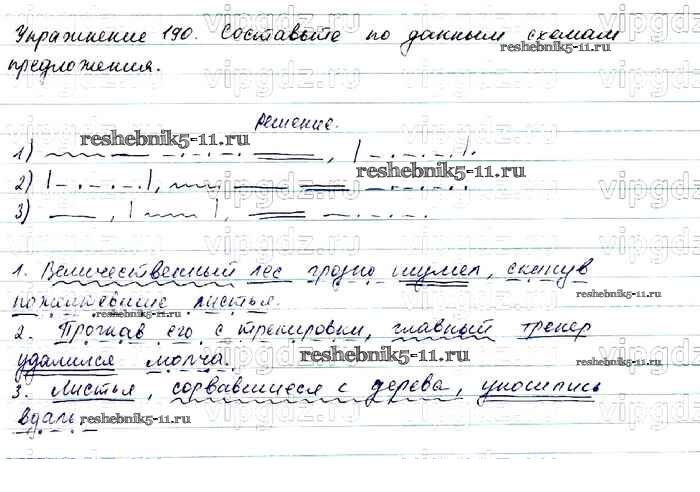 Упражнение 190. Составьте по данным схемам
предложения.
reshebnik5-11.ru
Решение.
reshebnik5-11.ru
1)
2)
reshebnik5-11.ru
3)
1. Величественный лес грозно шумел, скинув
пожелтевшие листья.
reshebnik5-11.ru
2. Прогнав его с тренировки, главный тренер
удалился молча.
reshebnik5-11.ru
3. Листья, сорвавшиеся с дерева, уносились
вдаль.
reshebnik5-11.ru
vipgdz.ru